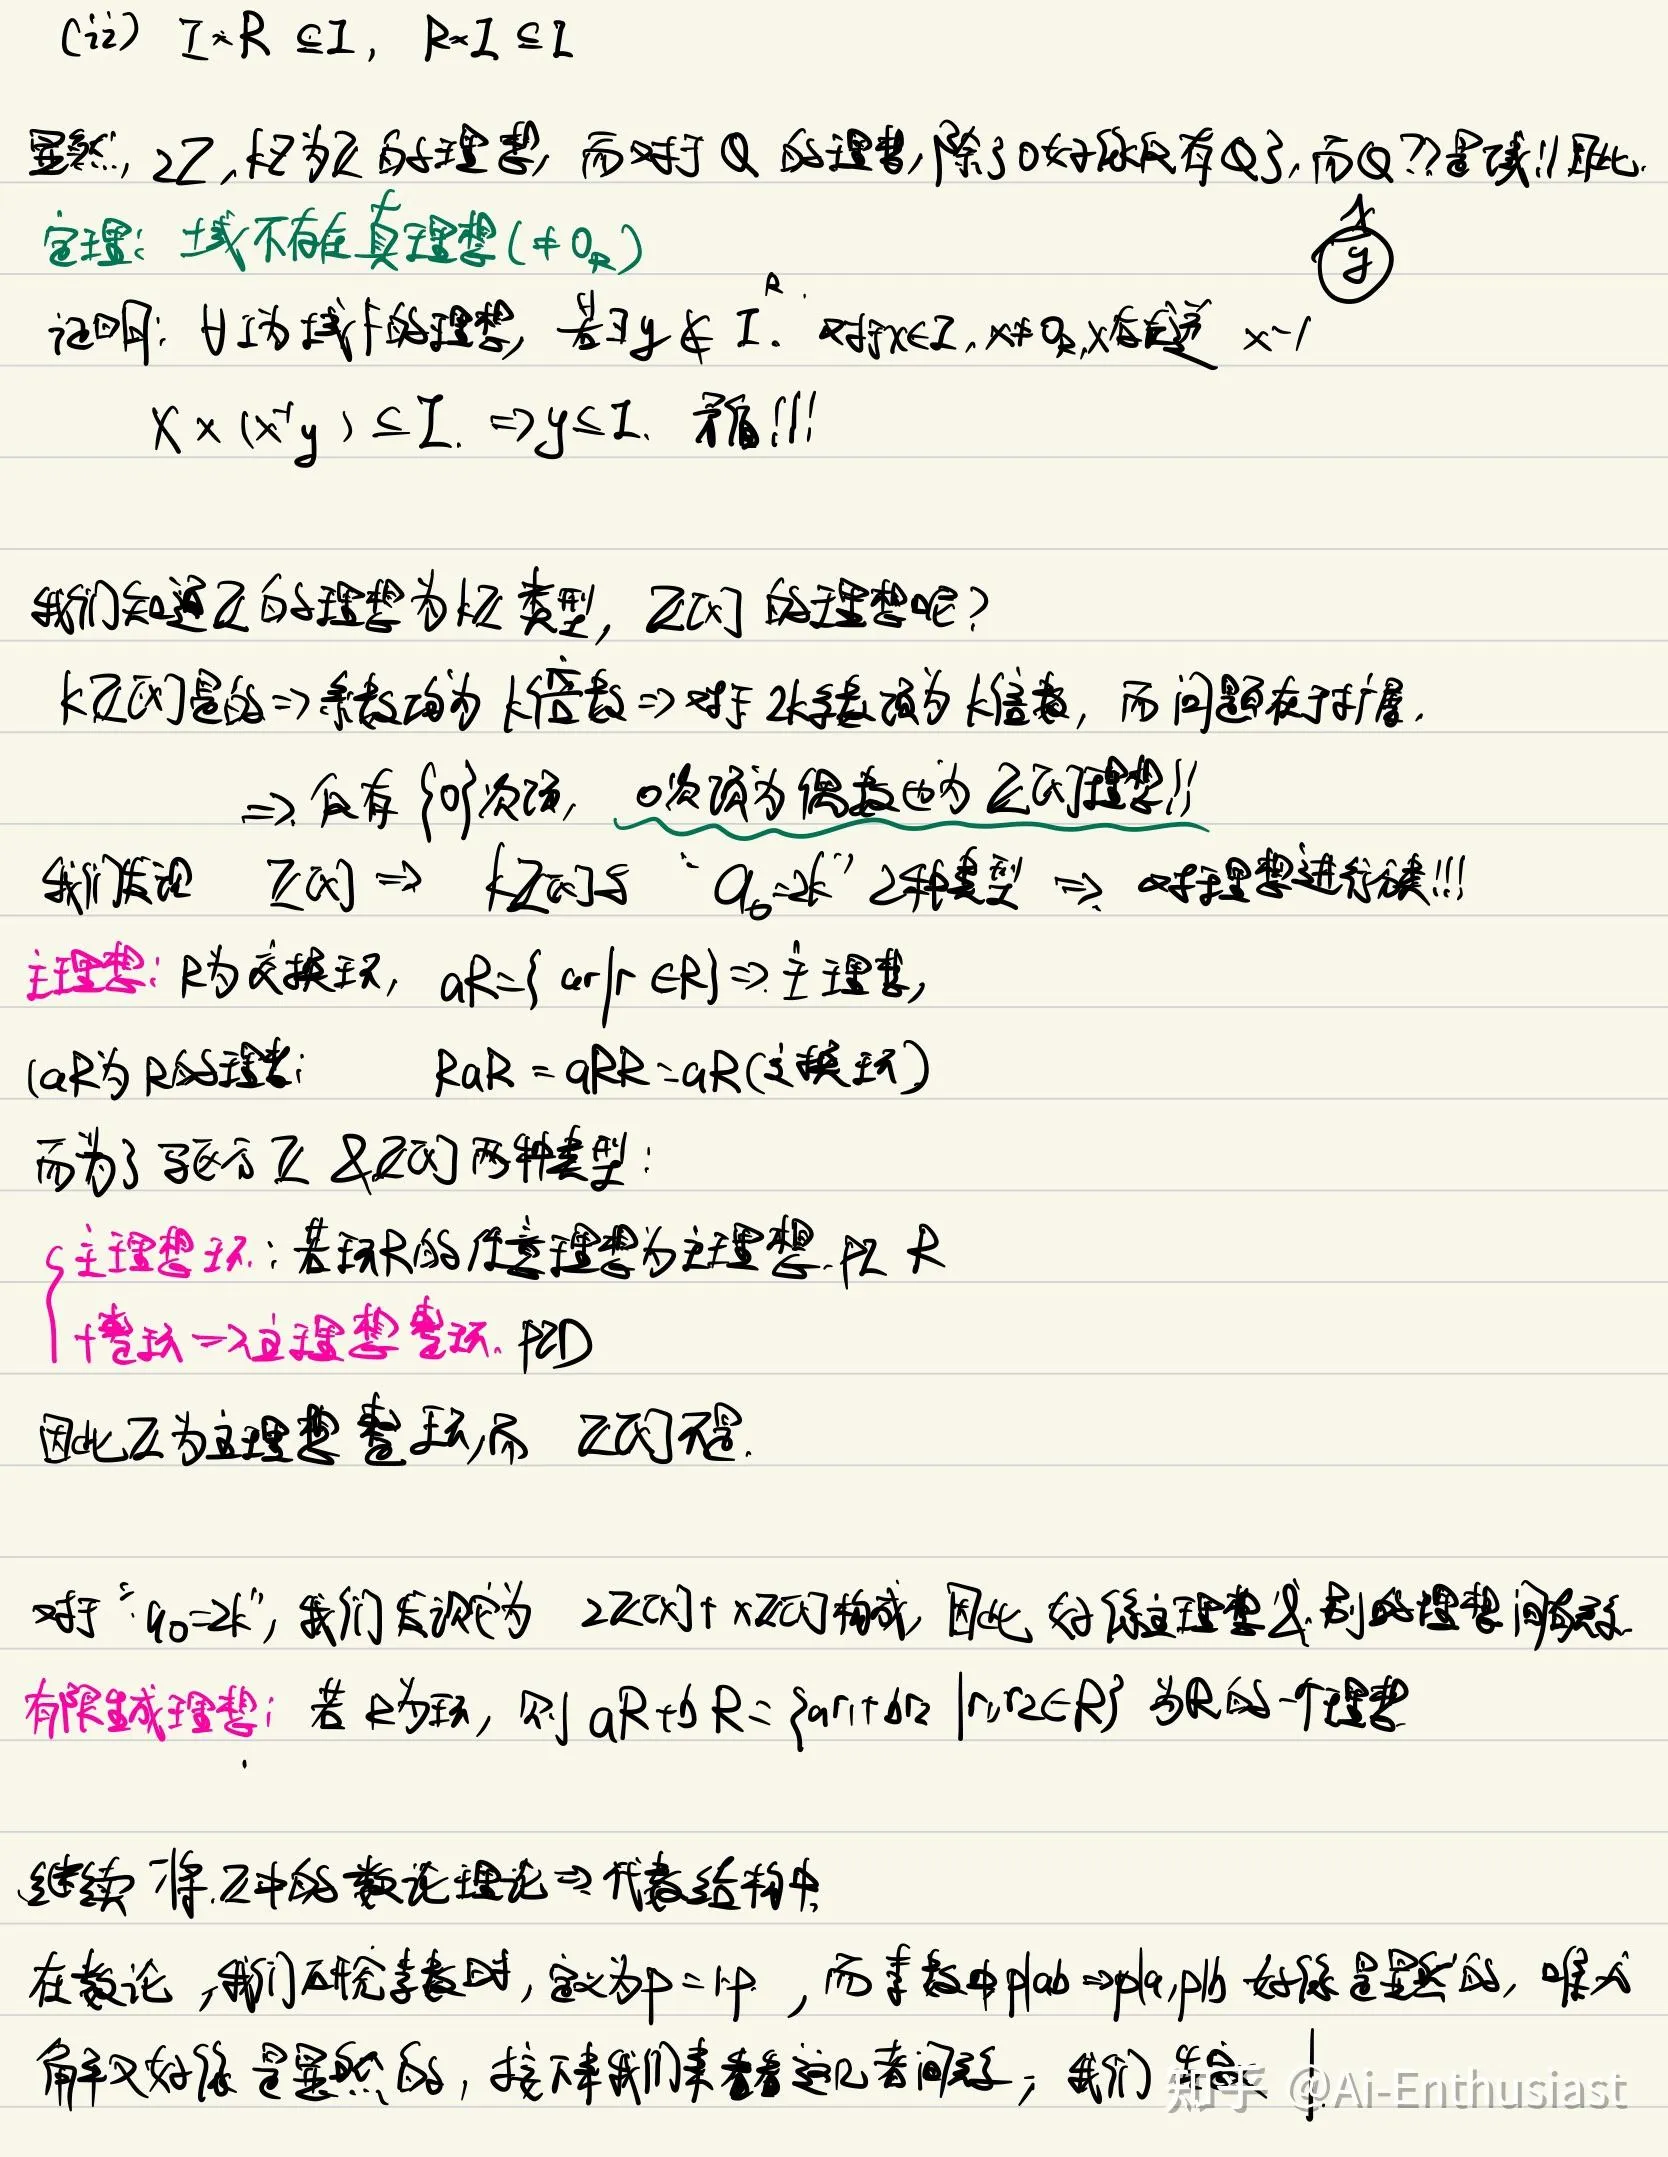 (ii) I×R⊆I, R×I⊆I
显然, 2Z, kZ为Z的理想, 而对于Q的理想, 除了0好像只有Q了, 而Q??是域!!因此
定理: 域不存在真理想(≠0_R)
y
证明: ∀I为域下的理想, 若∃y∉I. 对于x∈I, x≠0_R, x存在逆 x⁻¹
x×(x⁻¹y)⊆I. ⇒y⊆I. 矛盾!!!
我们知道Z的理想为kZ类型, Z[x]的理想呢?
kZ[x]是的⇒系数项为k倍数⇒对于2k系数项为k倍数, 而问题在于扩展.
⇒只有{0}次项, 0次项为偶数也为Z[x]理想!!
我们发现 Z[x]⇒ kZ[x]与“a₀=2k”2种类型 ⇒ 对理想进行分类!!!
主理想: R为交换环, aR={ar|r∈R}⇒主理想,
(aR为R的理想: RaR=aRR=aR(交换环)
而为了区分Z&Z[x]两种类型:
主理想环: 若环R的任意理想为主理想. PI R
+整环→主理想整环. PID
因此Z为主理想整环, 而 Z[x]不是.
对于“a₀=2k”, 我们发现它为 2Z[x]+xZ[x]构成, 因此好像主理想&别的理想间有关系
有限生成理想: 若R为环, 则aR+bR={ar₁+br₂|r₁,r₂∈R}为R的一个理想
继续将Z中的数论理论⇒代数结构中
在数论, 我们研究素数时, 定义为p=1·p, 而素数中p|ab⇒p|a,p|b好像是显然的, 唯一分
解又好像是显然的, 接下来我们来看看这几者间关系, 我们
知乎 @Ai-Enthusiast